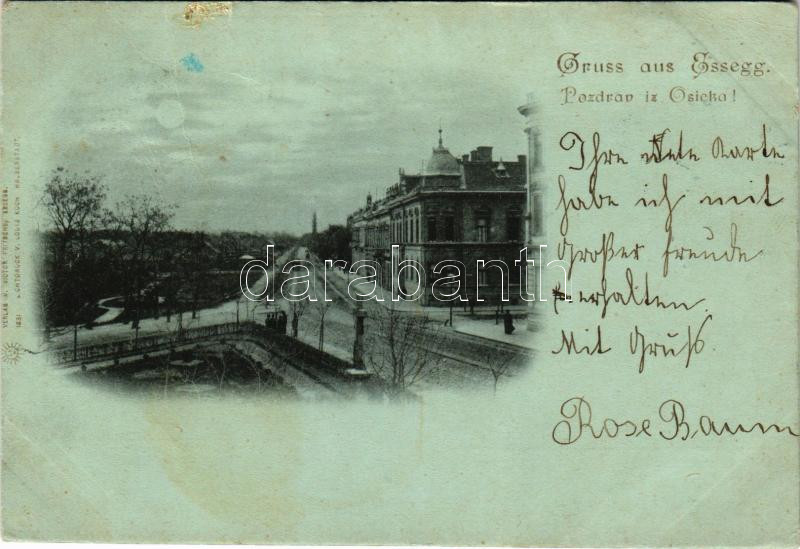 Gruss aus Essegg.
Pozdrav iz Osieka!
Ihre nete Karte
habe ich mit
Großer freude
erhalten.
Mit Gruß.
Rose Baum
darabanth.com
VERLAG V. VICTOR FRITSCHE, ESSEGG.
1831 LICHTDRUCK V. LOUIS KOCH, HALBERSTADT.